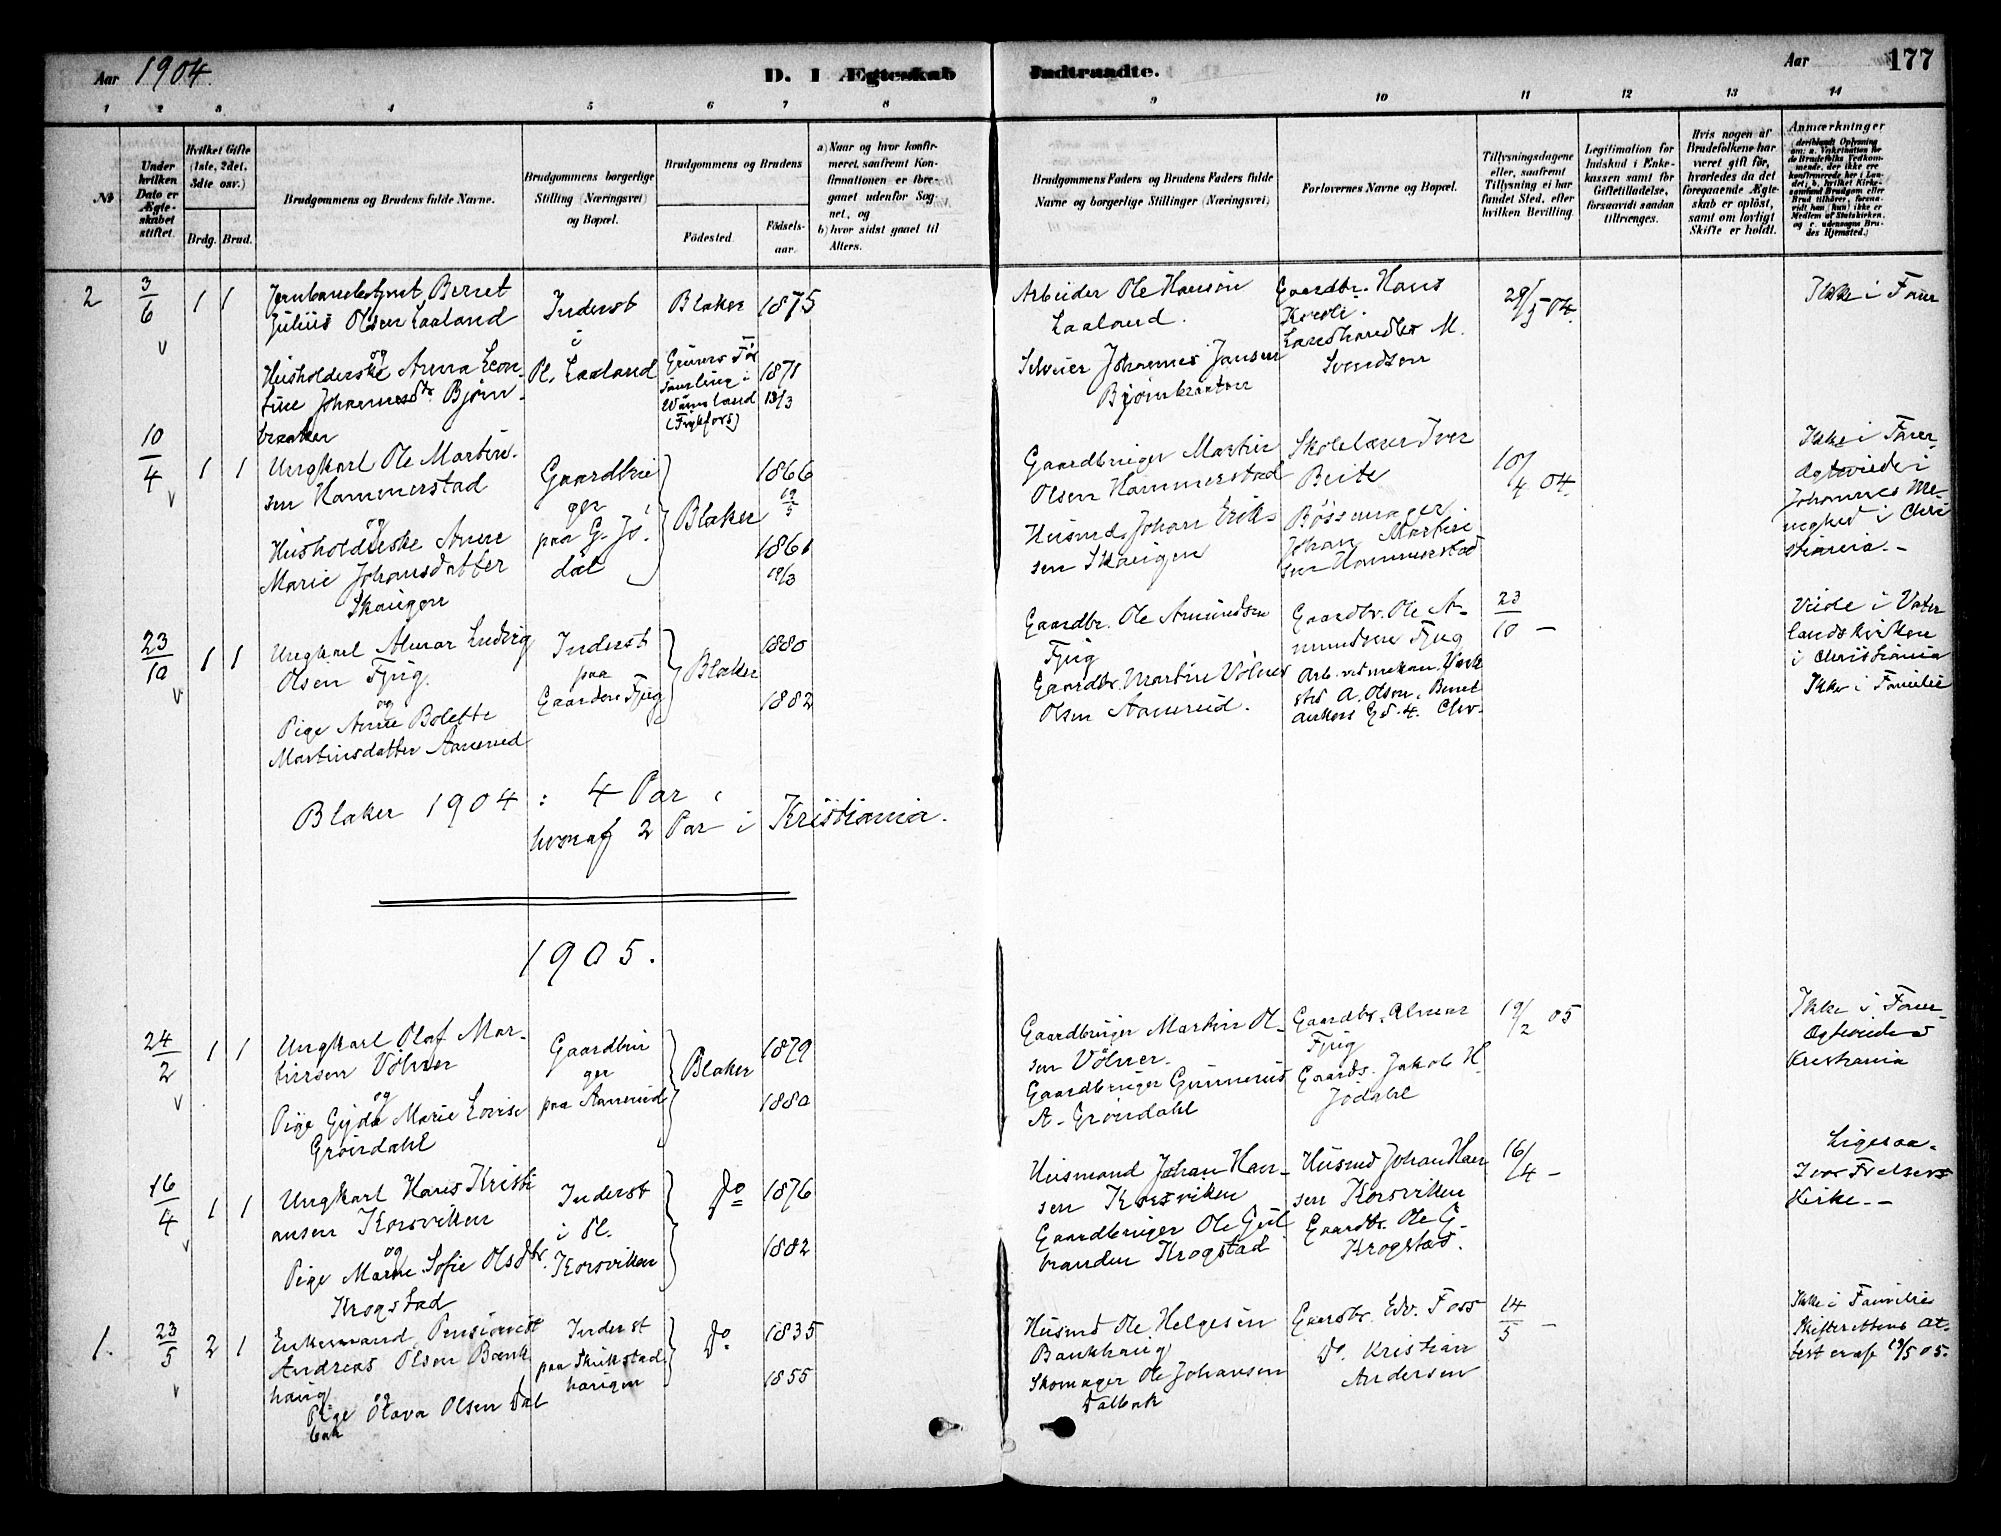 Aar 1904.
D. I Ægteskab Indtraadte.
Aar
177
1 2 3 4 5 6 7 8 9 10 11 12 13 14
№
Under hvilken Dato er Ægteskabet stiftet.
Hvilket Gifte (1ste, 2det, 3die osv.)
Brdg. Brud.
Brudgommens og Brudens fulde Navne.
Brudgommens borgerlige Stilling (Næringsvei) og Bopæl.
Brudgommens og Brudens
Födested.
Födselsaar.
a) Naar og hvor konfirmeret, saafremt Konfirmationen er foregaaet udenfor Sognet, og
b) hvor sidst gaaet til Alters.
Brudgommens Faders og Brudens Faders fulde Navne og borgerlige Stillinger (Næringsvei)
Forlovernes Navne og Bopæl.
Tillysningsdagene eller, saafremt Tillysning ei har fundet Sted, efter hvilken Bevilling.
Legitimation for Indskud i Enkekassen samt for Giftetilladelse, forsaavidt saadan tiltrænges.
Hvis nogen af Brudefolkene har været gift för, hvorledes da det foregaaende Ægteskab er oplöst, samt om lovligt Skifte er holdt.
Anmærkninger
2
3/6
1 1
Julius Olsen Laaland
og
Husholderske Anna Leon-
tine Johannesdtr Björn-
braaten
Inderst
i
Pl. Laaland
Blaker
1875
Wärmland
(Frykfors)
1871
13/3
Arbeider Ole Hansen
Laaland.
Johannes Jansen
Björnbraaten
Gaardbr. Hans
Landhandler M.
Svendsen
29/5 04.
Ikke i Fam
10/4
1 1
Ungkarl Ole Martin-
sen Hammerstad
og
Husholderske Anne
Marie Johansdatter
Skaugen
Gaardbru
ger
paa G. Jö-
dal
Blaker
1866
19/5
1861
19/3
Gaardbruger Martin
Olsen Hammerstad
Husmd. Johan Erik-
sen Skaugen
Skolelærer Iver
Beite
Bössemager
Johan Martin
sen Hammerstad
10/4 04.
Ikke i Fam-
Ægtviede i
Johannes Me-
nighed i Chri
stiania. -
23/10
1 1
Ungkarl Almar Ludvig
Olsen Fjug.
og
Pige Anne Bolette
Martinsdatter Aamerud
Inderst
paa
Gaarden Fjug
Blaker
1880
1882
Gaardbr. Ole Amundsen
Fjug
Gaardbr. Martin Völner
Olsen Aamerud.
Gaardbr. Ole A-
mundsen Fjug
Arb. ved mekan. Verk
sted A. Olson, Bernt
Ankers Gd. 4. Chr.
23/10 -
Viede i Vater
landskirken
i Christiania
Ikke i Familie
Blaker 1904 : 4 Par,
hvoraf 2 Par i Kristiania.
1905.
24/2
1 1
Ungkarl Olaf Mar-
tinsen Völner
og
Pige Gyda Marie Lovise
Gröndahl
Gaardbru
ger
paa Aamerud
Blaker
1879
1880
Gaardbruger Martin Ol-
sen Völner.
Gaardbruger Gunnerius
A. Gröndahl
Gaardbr. Almar
Fjug
Gaardb. Jakob H.
Jödahl
19/2 05
Ikke i Fam-
Kristiania
16/4
1 1
Ungkarl Hans Kristi
ansen Korsviken
og
Pige Marie Sofie Olsdtr.
Krogstad
Inderst
i Pl.
Korsviken
Do
1876
1882
Husmand Johan Han-
sen Korsviken
Gaardbruger Ole Gul
branden Krogstad
Husmd Johan Han
sen Korsviken
Gaardbr. Ole G.
Krogstad.
16/4 -
Ligesaa.
Vor Frelsers
Kirke. -
1.
23/5
2 1
Enkemand, Pensionist
Andreas Olsen Bank
haug
og
Pige Olava Olsen Dal
bak
Inderst
paa Skikstad
haugen
Do
1835
1855
Husmd Ole Helgesen
Bankhaug
Skomager Ole Johansen
Dalbak
Gaardbr. Edv. Foss
Do. Kristian
Andersen
14/5 -
Ikke i Familie
Skifterettens At-
test er af 19/5 05.